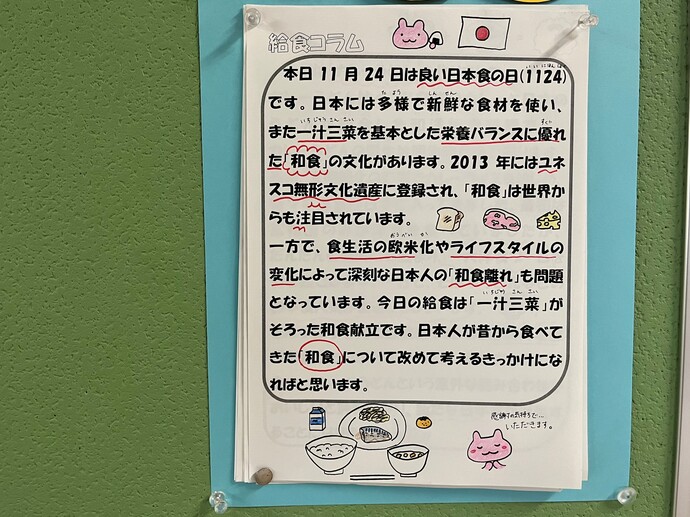 給食コラム
本日 11 月 24 日は良い日本食の日(1124)
です。日本には多様で新鮮な食材を使い、
また一汁三菜を基本とした栄養バランスに優れ
た「和食」の文化があります。2013 年にはユネ
スコ無形文化遺産に登録され、「和食」は世界か
らも注目されています。
一方で、食生活の欧米化やライフスタイルの
変化によって深刻な日本人の「和食離れ」も問題
となっています。今日の給食は「一汁三菜」が
そろった和食献立です。日本人が昔から食べて
きた「和食」について改めて考えるきっかけにな
ればと思います。
感謝の気持ちで…
いただきます。